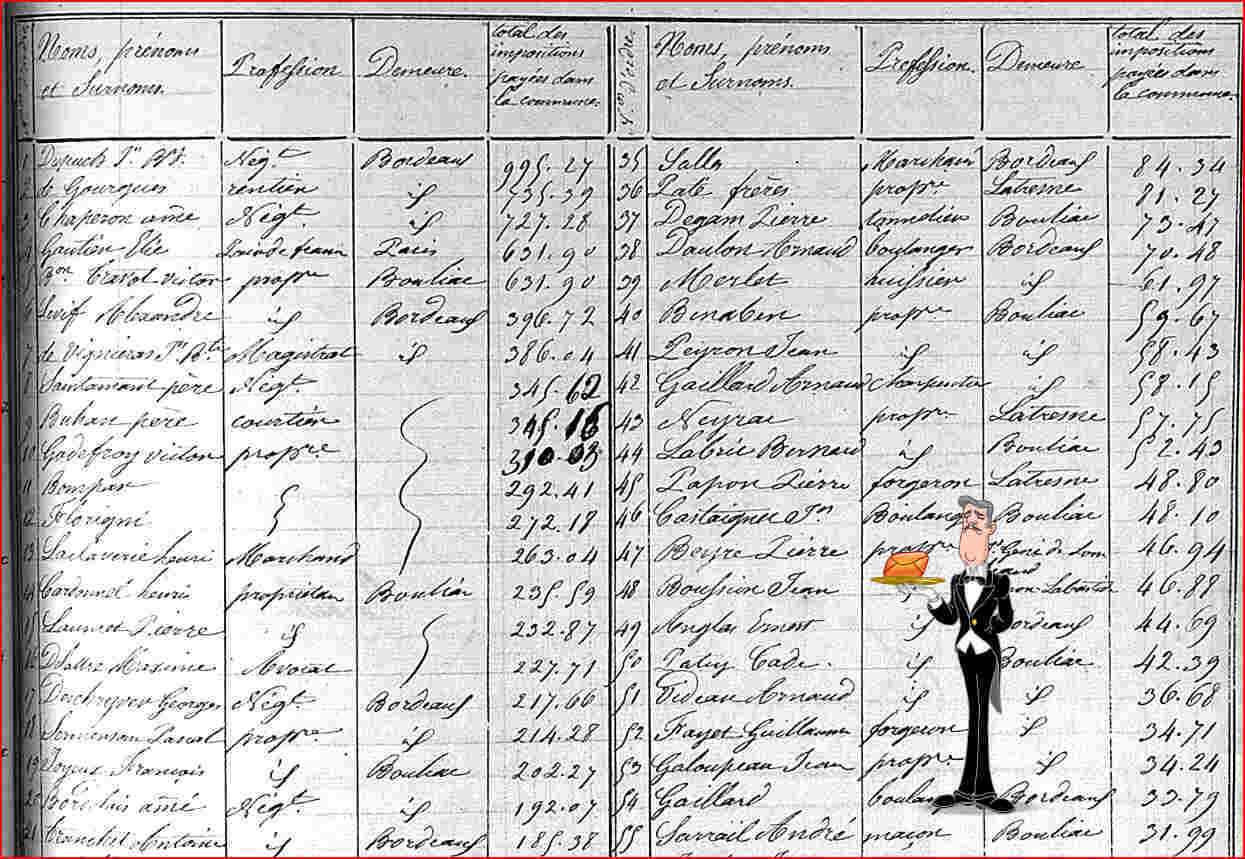 Noms, prénoms et Surnoms. Profession Demeure. total des impositions payées dans la commune. Nos d'ordre Noms, prénoms et Surnoms. Profession. Demeure total des impositions payées dans la commune.
1 Dupuch Jn Bte. Négt Bordeaux 995.27 35 Salles Marchand Bordeaux 84.34
2 de Gourgues rentier id 735.39 36 Paté frères propre Latresne 81.27
3 Chaperon ainé Négt id 727.28 37 Degam Pierre tonnelier Bouliac 73.47
4 Gautier Elie Paris 631.90 38 Daulon Arnaud boulanger Bordeaux 70.48
5 Bon Travot victor propre Bouliac 631.90 39 Merlet huissier id 61.97
6 Alexandre id Bordeaux 396.72 40 Benaben propre Bouliac 59.67
7 de Vignieras Jn Bte Magistrat id 386.04 41 Peyron Jean id id 58.43
8 Santamant père Négt 345.62 42 Gaillard Arnaud Charpentier id 58.15
9 Buhan père courtier 345.16 43 Neyrac propre Latresne 57.75
10 Godefroy victor propre 310.03 44 Labrie Bernard id Bouliac 52.43
11 Bompar 292.41 45 Papon Pierre forgeron Latresne 48.80
12 Florigni 272.18 46 Castaignet Jn Boulang Bouliac 48.10
13 Laclaverie henri Marchand 263.04 47 Beyre Pierre propre 46.94
14 Cardonnel henri propriétaire Bouliac 235.59 48 Boussin Jean 46.88
15 Laurret Pierre id 232.87 49 Anglas Ernest id ordeaux 44.69
16 Maxime Avocat 227.71 50 Cadet. id Bouliac 42.39
17 Deschryver Georges Négt Bordeaux 217.66 51 Videau Arnaud id id 36.68
18 Pascal propre id 214.28 52 Fayet Guillaume forgeron id 34.71
19 Joyeux François id Bouliac 202.27 53 Galoupeau Jean propre id 34.24
20 Bordelais ainé Négt id 192.07 54 Gaillard boulan Bordeaux 33.79
21 Tranchet Antoine id Bordeaux 185.38 55 Sarrail André maçon Bouliac 31.99